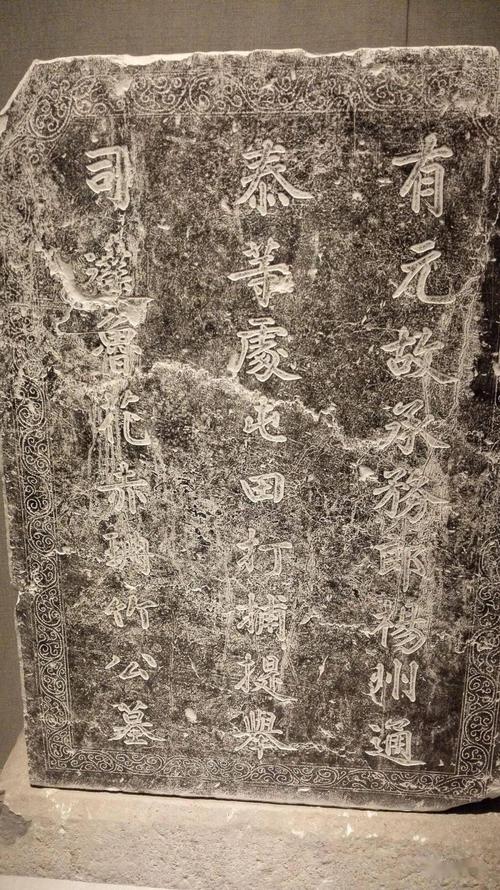 有元故承務郎楊州通
泰等處屯田打捕提舉
司達魯花赤珊竹公墓